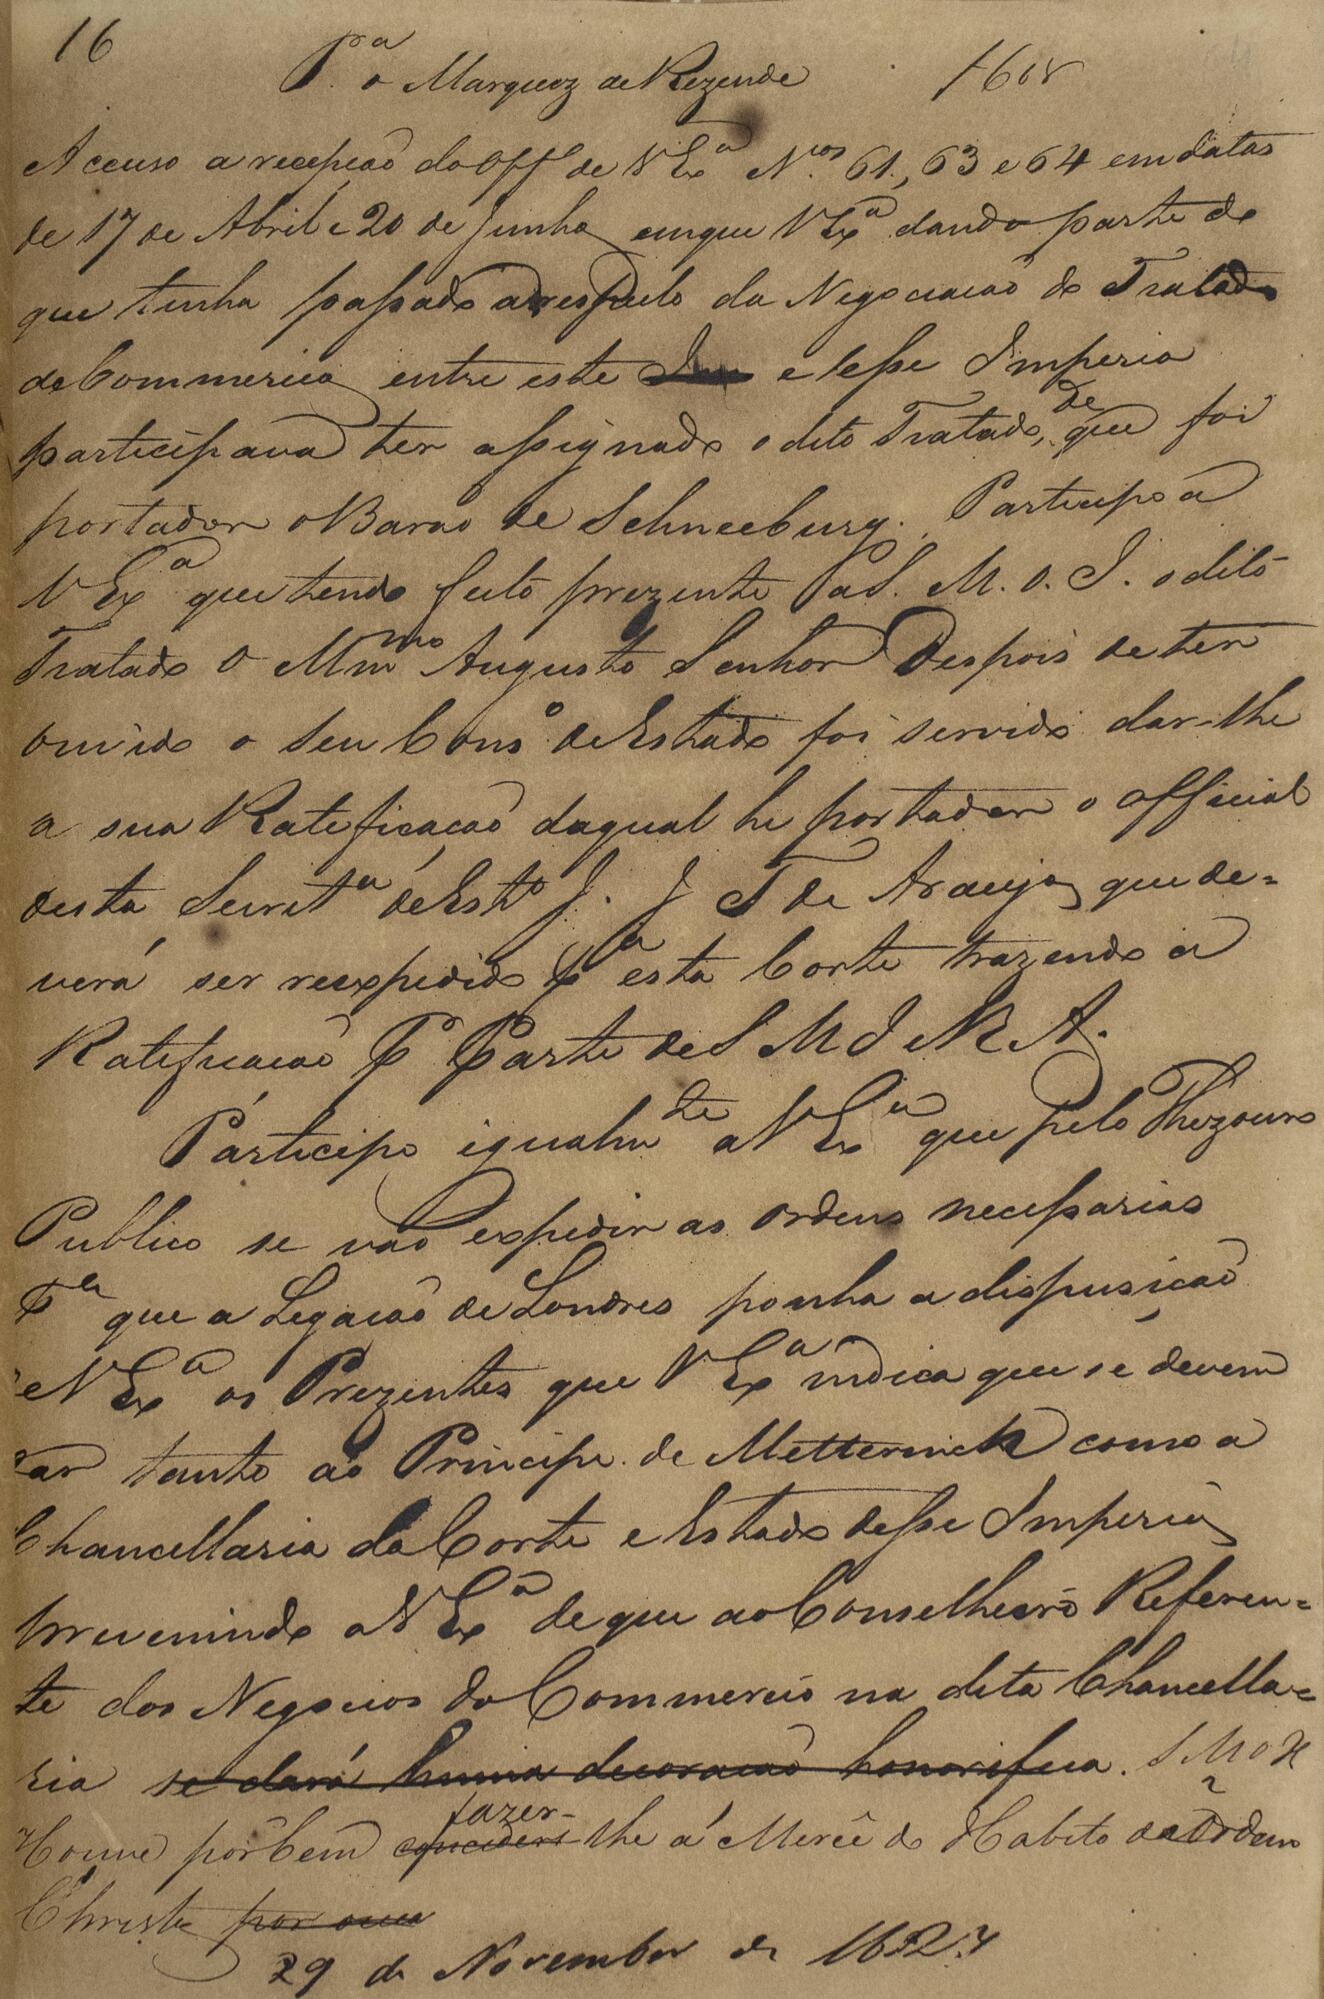 16
P.ª o Marquez de Rezende
Accuso a recepção do Off de V Ex.ª N.ᵒˢ 61, 63 e 64 em datas
de 17 de Abril e 20 de Junho em que V Ex.ª dando parte do
que tinha passado a respeito da Negociacaõ do Tratado
do Commercio entre este e esse Imperio
participava ter assignado o dito Tratado, de que foi
portador o Baraõ de Schneeburg. Participo a
V Ex.ª que tendo feito prezente a S. M. O. I. o dito
Tratado O Mm.ᵐᵒ Augusto Senhor Despois de ter
ouvido o seu Cons.º de Estado foi servido dar-lhe
a sua Ratificaçaõ da qual he portador o official
desta Secret.ª de Est.º J. J T de Araujo que de=
verá ser reexpedido P.ª esta Corte trazendo a
Ratificacaõ P.r Parte de S M I R A.
Participo igualm.te a V Ex.ª que pelo Thezouro
Publico se vaõ expedir as ordens necessarias
P.ª que a Legacaõ de Londres ponha a dispusiçaõ
de V Ex.ª os Prezentes que V Ex.ª indica que se devem
dar tanto ao Principe de Metternich como a
Chancellaria da Corte e Estado desse Imperio
prevenindo a V Ex.ª de que ao Conselheiro Referen=
te dos Negocios do Commercio na dita Chancella=
ria se dará huma decoracaõ honorifica. S M O I
Houve por bem conceder fazer-lhe a Mercê do Habito da Ordem
Christo por sua
29 de Novembro de 1827